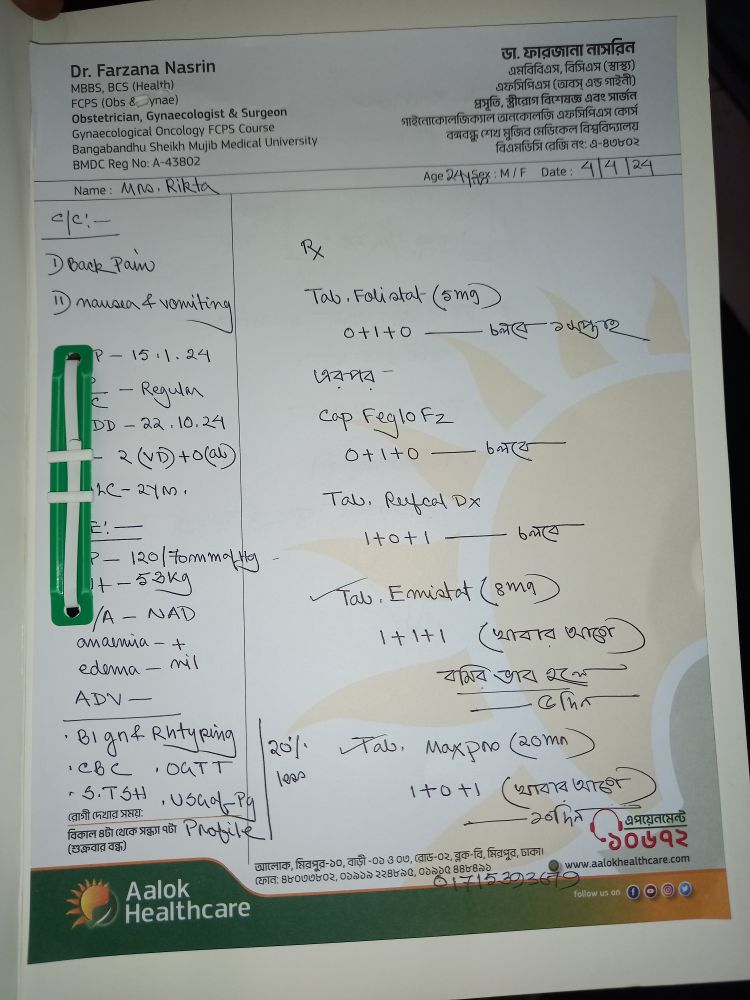 Dr. Farzana Nasrin
MBBS, BCS (Health)
FCPS (Obs & Gynae)
Obstetrician, Gynaecologist & Surgeon
Gynaecological Oncology FCPS Course
Bangabandhu Sheikh Mujib Medical University
BMDC Reg No: A-43802
ডা. ফারজানা নাসরিন
এমবিবিএস, বিসিএস (স্বাস্থ্য)
এফসিপিএস (অবস্ এন্ড গাইনী)
প্রসূতি, স্ত্রীরোগ বিশেষজ্ঞ এবং সার্জন
গাইনোকোলজিক্যাল অনকোলজি এফসিপিএস কোর্স
বঙ্গবন্ধু শেখ মুজিব মেডিকেল বিশ্ববিদ্যালয়
বিএমডিসি রেজি নং: এ-৪৩৮০২
Name : Mrs. Rikta Age 24yrs Sex : M / F Date : 4/4/24
C/C:-
I) Back Pain
II) nausea & vomiting
P - 15.1.24
C - Regular
DD - 22.10.24
- 2 (VD) + 0 (ab)
LC - 2
E: -
P - 120/70mmofHg
Wt - 53kg
/A - NAD
anaemia - +
edema - nil
ADV -
. Bl gr & Rh typing
. CBC . OGTT
. S. TSH . USG of Pg
Profile
20% less
Rx
Tab. Folistat (5mg)
0+1+0 — চলবে
এরপর -
Cap Feglo Fz
0+1+0 — চলবে
Tab. Reufcal Dx
1+0+1 — চলবে
Tab. Emistat (8mg)
1+1+1 (খাবার আগে)
বমির ভাব হলে
— ৫ দিন
Tab. Maxpro (20mg)
1+0+1 (খাবার আগে)
— ১০ দিন
রোগী দেখার সময়:
বিকাল ৪টা থেকে সন্ধ্যা ৭টা
(শুক্রবার বন্ধ)
এপয়েনমেন্ট
১০৬৭২
আলোক, মিরপুর-১০, বাড়ী -০১ ও ০৩, রোড-০২, ব্লক-বি, মিরপুর, ঢাকা।
ফোন: ৪৮০৩৩৮০২, ০১৯১৯ ২২৪৮৯৫, ০১৯১৫ ৪৪৮৪৯১
01715393679
www.aalokhealthcare.com
follow us on
Aalok
Healthcare